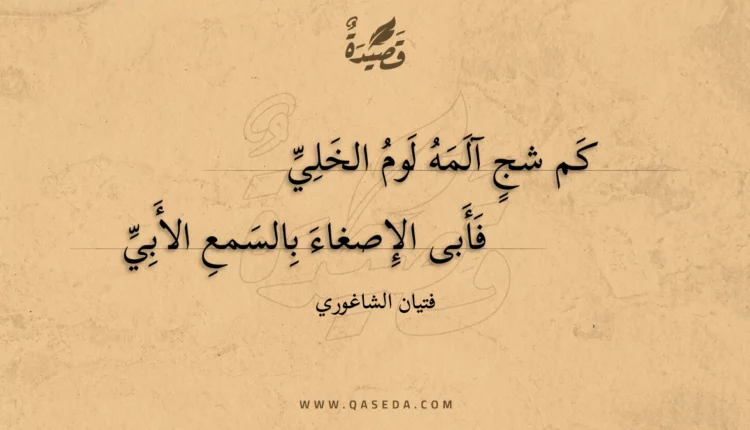 قَصِيْدَةٌ
كَم شجٍ آلَمَهُ لَومُ الخَلِيِّ
فَأَبى الإِصغاءَ بِالسَمعِ الأَبِيِّ
فتيان الشاغوري
WWW.QASEDA.COM